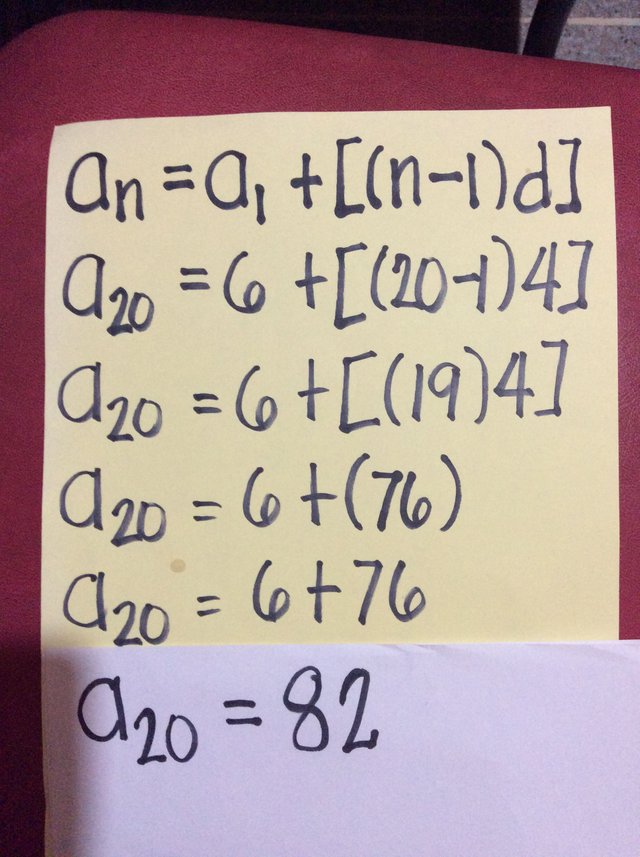 an = a1 + [(n-1)d]
a20 = 6 + [(20-1)4]
a20 = 6 + [(19)4]
a20 = 6 + (76)
a20 = 6 + 76
a20 = 82